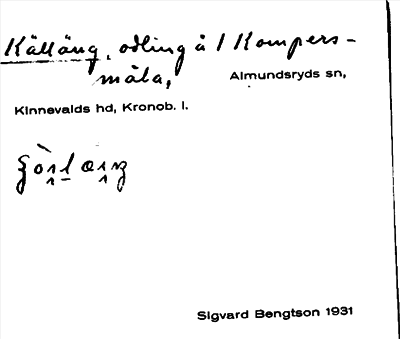 Källäng, odling å 1 Kompers-
måla, Almundsryds sn,
Kinnevalds hd, Kronob. l.
Sigvard Bengtson 1931